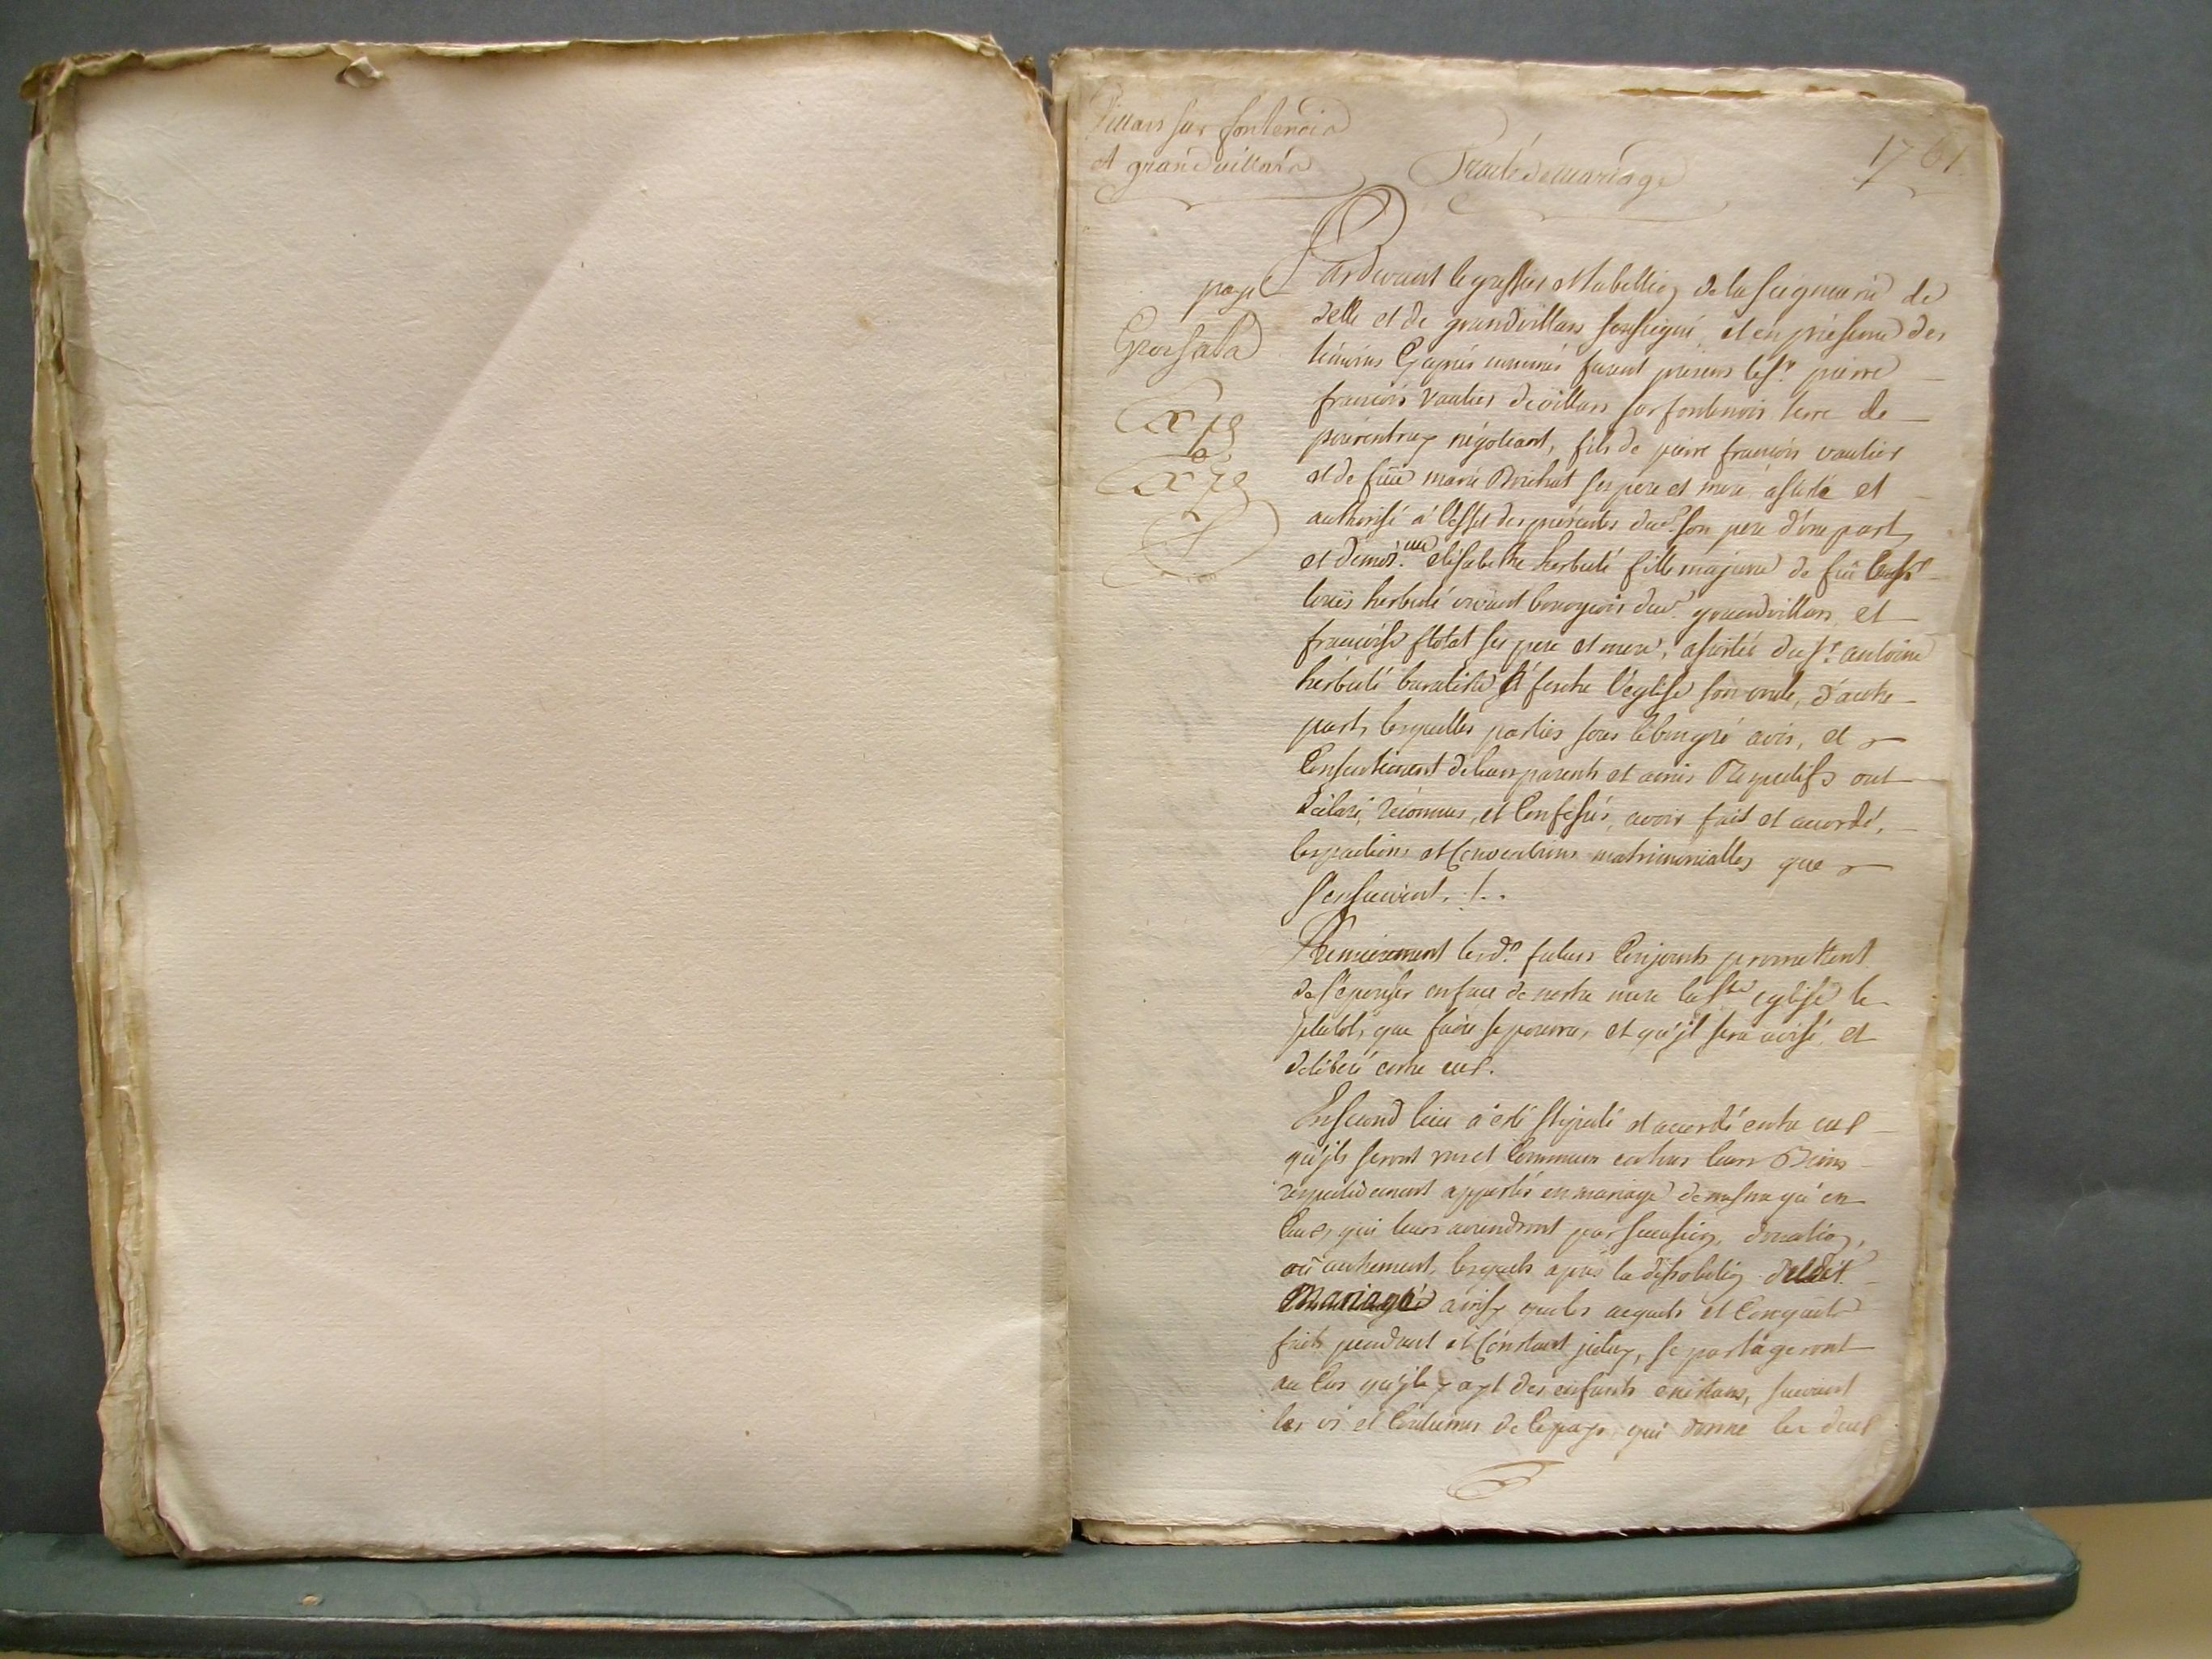 Villars sur fontenois
et grandvillard
Traité de mariage
1761.
payé
Grossoié
Pardevant le greffier et tabellion de la seigneurie de
delle et de grandvillars soussigné, et en présence des
témoins cy après només furent présens le Sr. pierre
françois vautier de villars sur fontenois terre de
porrentruy négotiant, fils de pierre françois vautier
et de füe marie Brichat ses pere et mere assisté et
authorisé a l'effet des présentes dud. son pere d'une part,
et demois.elle elisabethe herbelé fille majeure de fûe
louis herbelé vivant bourgeois dud. grandvillars, et
françoise flotat ses pere et mere, assistée du Sr. antoine
herbelé buraliste à fesche l'eglise son oncle, d'autre
part, lesquelles parties sous le bongré avis, et
Consentement de leurs parents et amis Respectifs ont
déclaré, reconnus, et Confessés, avoir fait et accordé,
les pactions et Conventions matrimonialles que
s'ensuivent. !..
Premierement lesds. futurs Conjoints promettent
de s'epouser en face de nostre mere la Ste eglise le
plutot, que faire se pourra, et qu'jl sera avisé, et
deliberé entre eux.
En second lieu a été stipulé et accordé entre eux
qu'jls seront uns et Communs en tous leurs Biens
respectivement apportés en mariage de mesme qu'en
Ceux, qui leurs aviendront par succession, donation,
oû autrement, lesquels après la dissolution dudit
Mariage ainsy que les acquets et Conquets
faits pendant et Constant jceluy, se partageront
au Cas qu'jl y ayt des enfants existans, suivant
les us et Coutumes de Ce pays qui donne les deux